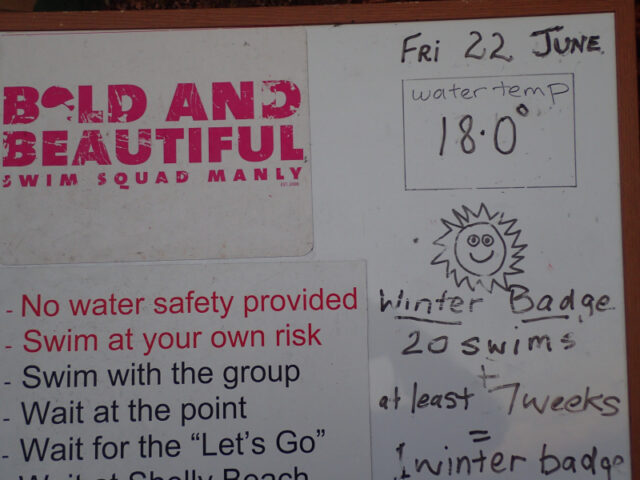 BOLD AND
BEAUTIFUL
SWIM SQUAD MANLY
- No water safety provided
- Swim at your own risk
- Swim with the group
- Wait at the point
- Wait for the "Let's Go"
- Wait at Shelly Beach
FRI 22 JUNE
water temp
18.0°
Winter Badge
20 swims
+
at least 7 weeks
=
1 winter badge